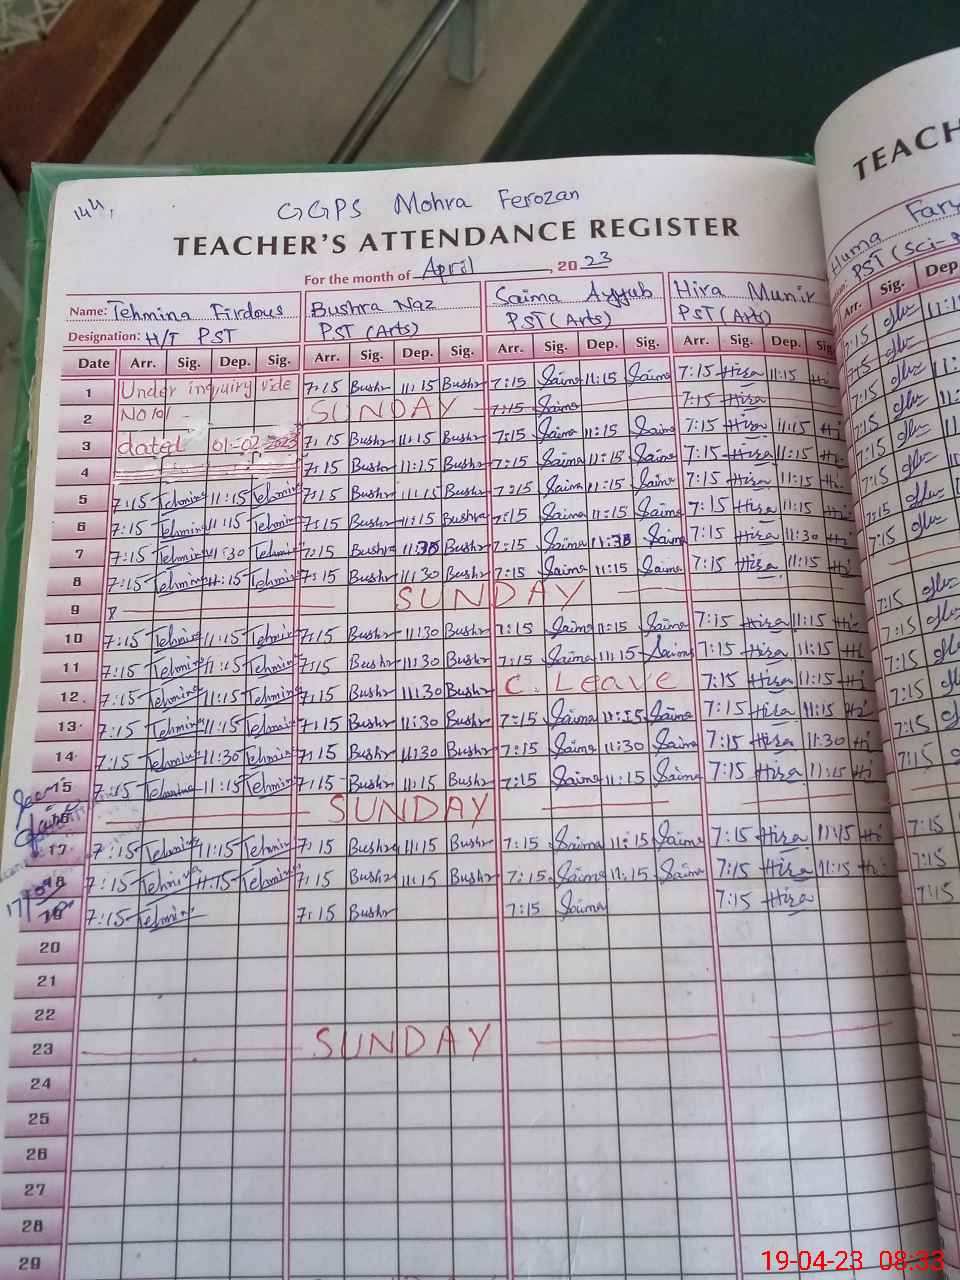 144,
GGPS Mohra Ferozan
TEACHER'S ATTENDANCE REGISTER
For the month of April, 20 23
Name: Tehmina Firdous Bushra Naz Saima Ayyub Hira Munir
Designation: H/T PST PST (Arts) PST (Arts) PST (Arts)
Date Arr. Sig. Dep. Sig. Arr. Sig. Dep. Sig. Arr. Sig. Dep. Sig. Arr. Sig. Dep.
1 Under inquiry vide 7:15 Bushr 11:15 Bushr 7:15 Saima 11:15 Saima 7:15 Hira 11:15 Hi
2 SUNDAY 7:15 Saima 7:15 Hira
3 dated 01-02-2023 7:15 Bushr 11:15 Bushr 7:15 Saima 11:15 Saima 7:15 Hira 11:15 Hi
4 7:15 Bushr 11:15 Bushr 7:15 Saima 11:15 Saima 7:15 Hira 11:15 Hi
5 7:15 Tehmina 11:15 Tehmina 7:15 Bushr 11:15 Bushr 7:15 Saima 11:15 Saima 7:15 Hira 11:15 Hi
6 7:15 Tehmina 11:15 Tehmina 7:15 Bushr 11:15 Bushra 7:15 Saima 11:15 Saima 7:15 Hira 11:15 Hi
7 7:15 Tehmina 11:30 Tehmina 7:15 Bushra 11:30 Bushr 7:15 Saima 11:30 Saima 7:15 Hira 11:30 Hi
8 7:15 Tehmina 11:15 Tehmina 7:15 Bushr 11:30 Bushr 7:15 Saima 11:15 Saima 7:15 Hira 11:15 Hi
9 SUNDAY
10 7:15 Tehmina 11:15 Tehmina 7:15 Bushr 11:30 Bushr 7:15 Saima 11:15 Saima 7:15 Hira 11:15 Hi
11 7:15 Tehmina 11:15 Tehmina 7:15 Bushr 11:30 Bushr 7:15 Saima 11:15 Saima 7:15 Hira 11:15 Hi
12 7:15 Tehmina 11:15 Tehmina 7:15 Bushr 11:30 Bushr C. Leave 7:15 Hira 11:15 Hi
13 7:15 Tehmina 11:15 Tehmina 7:15 Bushr 11:30 Bushr 7:15 Saima 11:15 Saima 7:15 Hira 11:15 Hi
14 7:15 Tehmina 11:30 Tehmina 7:15 Bushr 11:30 Bushr 7:15 Saima 11:30 Saima 7:15 Hira 11:30 Hi
15 7:15 Tehmina 11:15 Tehmina 7:15 Bushr 11:15 Bushr 7:15 Saima 11:15 Saima 7:15 Hira 11:15 Hi
SUNDAY
17 7:15 Tehmina 11:15 Tehmina 7:15 Bushra 11:15 Bushr 7:15 Saima 11:15 Saima 7:15 Hira 11:15 Hi
7:15 Tehmina 11:15 Tehmina 7:15 Bushr 11:15 Bushr 7:15 Saima 11:15 Saima 7:15 Hira 11:15 Hi
7:15 Tehmina 7:15 Bushr 7:15 Saima 7:15 Hira
20
21
22
23 SUNDAY
24
25
26
27
28
29
TEACH
Huma Fary
PST (Sci-
Arr. Sig. Dep
19-04-23 08:33